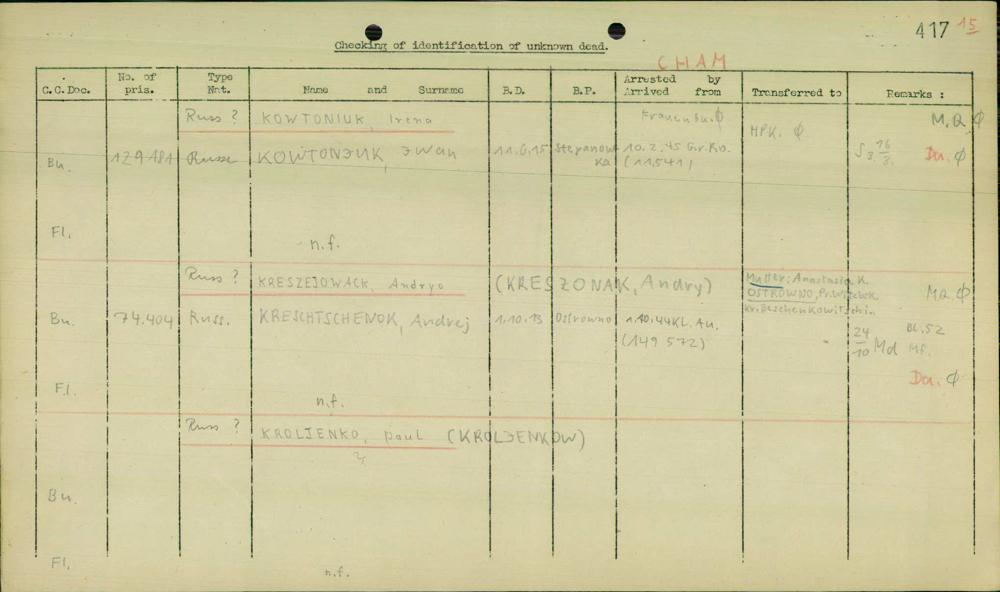 417 15
Checking of identification of unknown dead.
CHAM
C.C.Doc. No. of pris. Type Nat. Name and Surname B.D. B.P. Arrested by Arrived from Transferred to Remarks :
Russ ? KOWTONIUK, Irena Frauenbu. Ø HPK. Ø M.Q. Ø
Bu. 129181 Russe KOWTONJUK, Iwan 11.6.15 Stepanowka 10.2.45 Gr.Ro. (11541) Da. Ø
Fl. n.f.
Russ ? KRESZEJOWACK, Andryo (KRESZONAK, Andry) Mutter: Anastasia K.
OSTROWNO, Pr. Witewk. MQ. Ø
Kr. Beschenkowitschin
Bu. 74.404 Russ. KRESCHTSCHENOK, Andrej 1.10.13 Ostrowno 1.10.44 KL. Au. (149572) 24/10 Md Bl.52 Mf.
Da. Ø
Fl. n.f.
Russ ? KROLJENKO, Paul (KROLJENKOW)
Bu.
Fl. n.f.